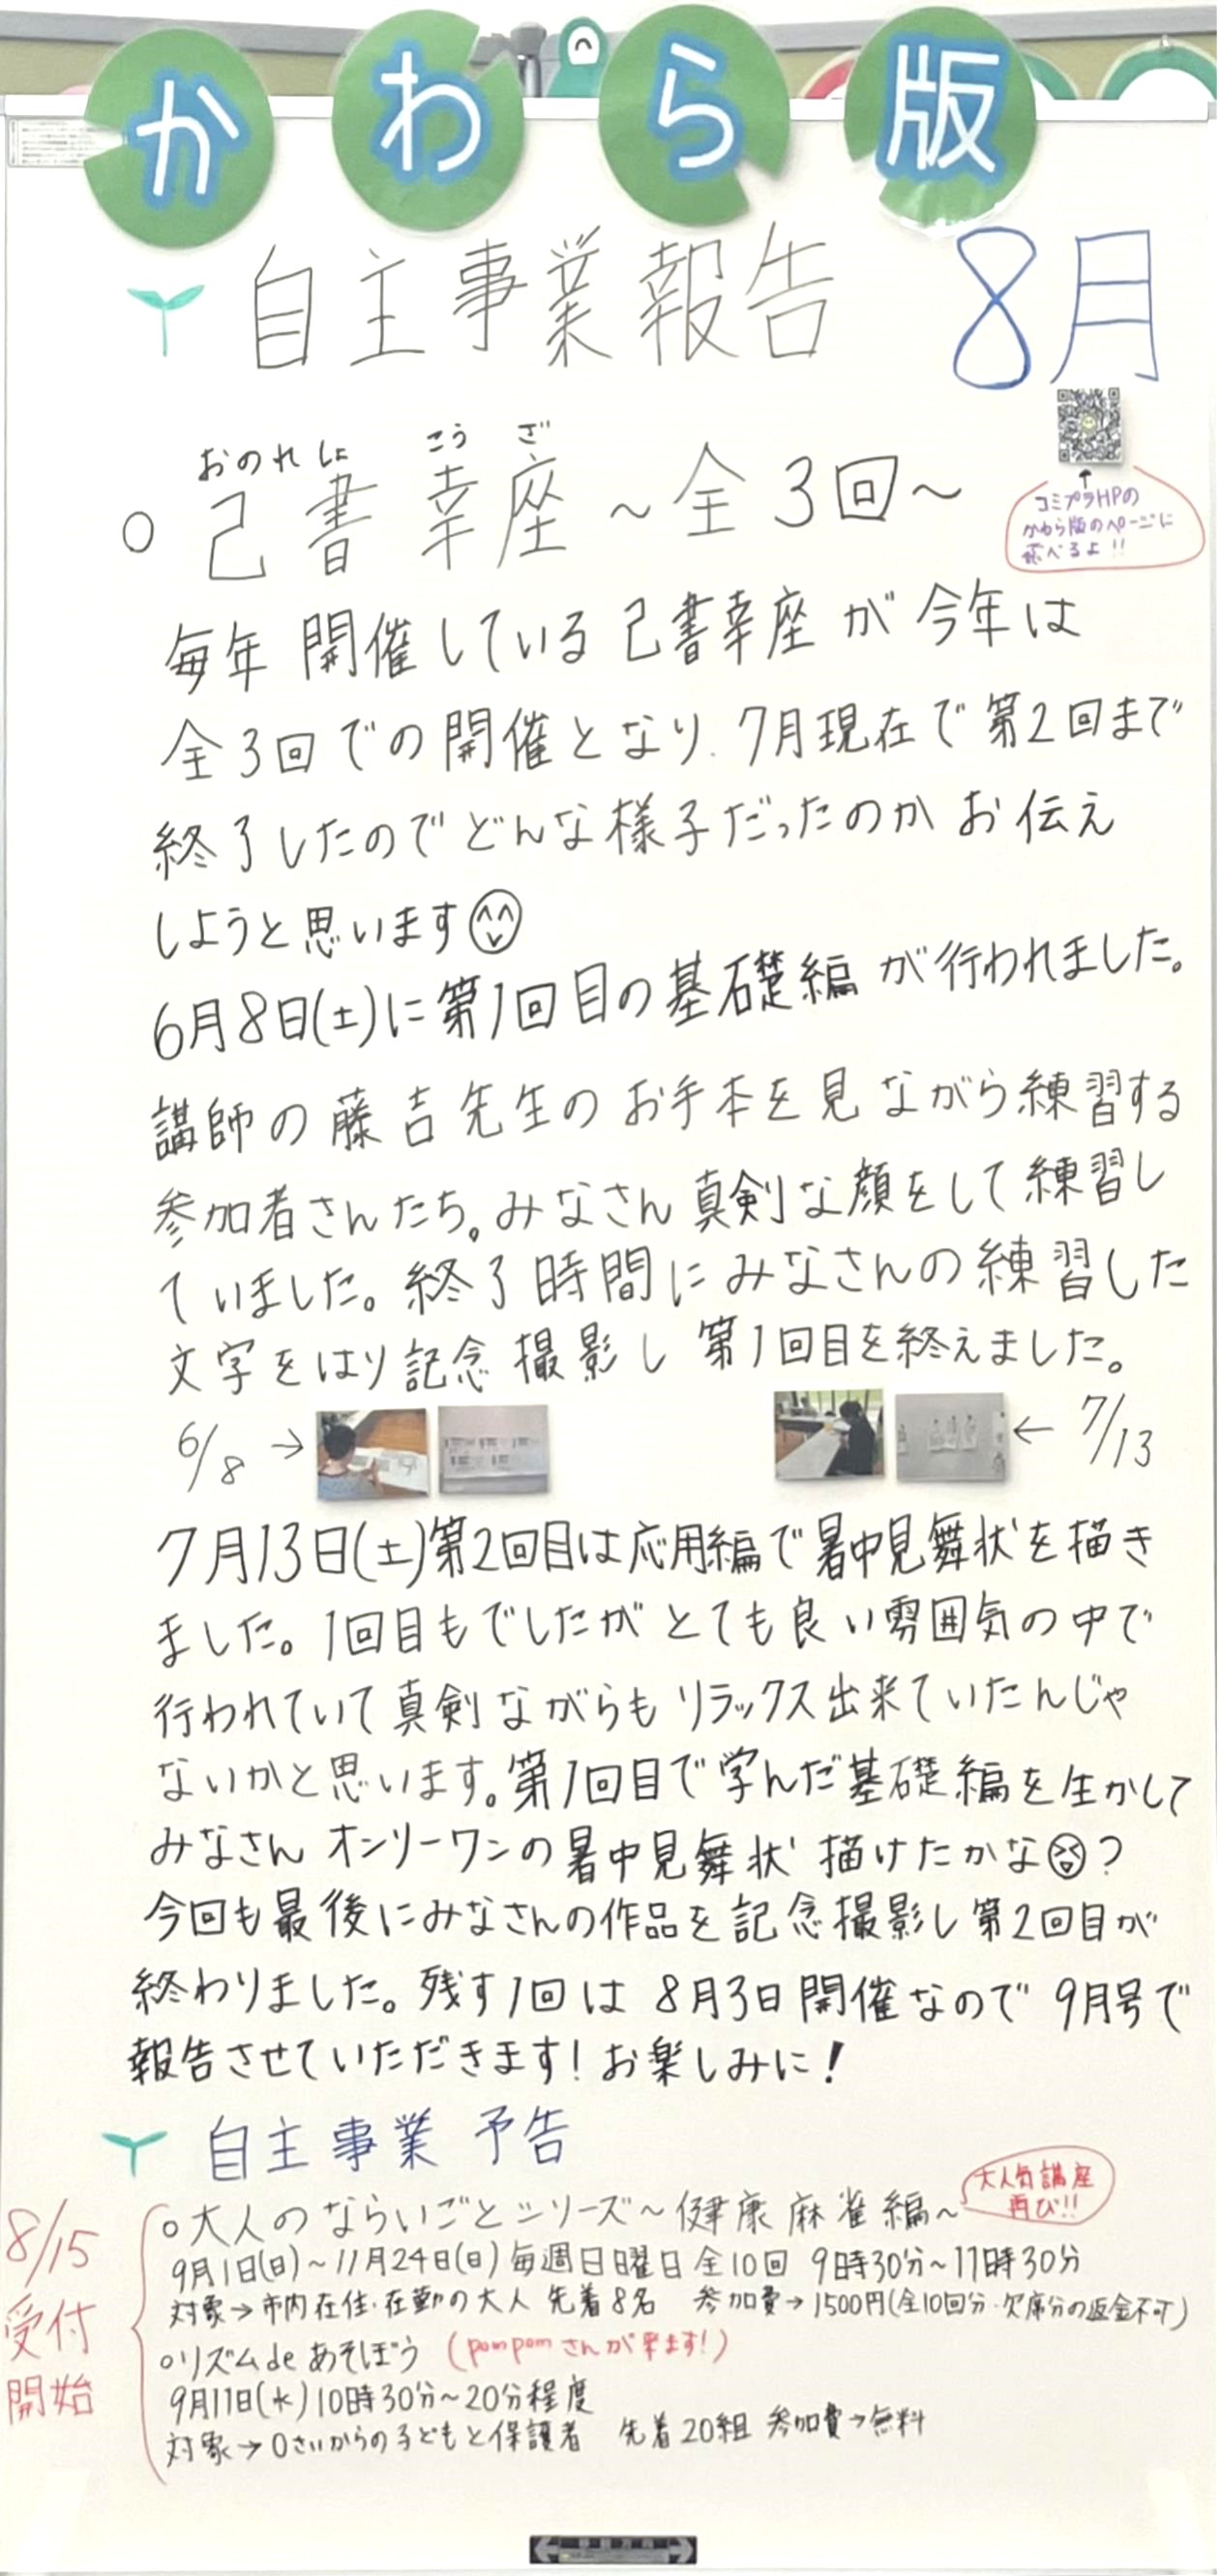 かわら版
自主事業報告 8月
おのれしょ こう ざ
○ 己書幸座 ～全3回～
コミプラHPの
かわら版のページに
飛べるよ!!
毎年開催している己書幸座が今年は
全3回での開催となり、7月現在で第2回まで
終了したのでどんな様子だったのかお伝え
しようと思います
6月8日(土)に第1回目の基礎編が行われました。
講師の藤吉先生のお手本を見ながら練習する
参加者さんたち。みなさん真剣な顔をして練習し
ていました。終了時間にみなさんの練習した
文字をはり記念撮影し第1回目を終えました。
6/8 → ← 7/13
7月13日(土)第2回目は応用編で暑中見舞状を描き
ました。1回目もでしたがとても良い雰囲気の中で
行われていて真剣ながらもリラックス出来ていたんじゃ
ないかと思います。第1回目で学んだ基礎編を生かして
みなさんオンリーワンの暑中見舞状描けたかな?
今回も最後にみなさんの作品を記念撮影し第2回目が
終わりました。残す1回は8月3日開催なので9月号で
報告させていただきます!お楽しみに!
自主事業予告
8/15
受付
開始
○大人のならいごとシリーズ～健康麻雀編～
大人気講座
再び!!
9月1日(日)～11月24日(日)毎週日曜日 全10回 9時30分～11時30分
対象→市内在住・在勤の大人 先着8名 参加費→1500円(全10回分・欠席分の返金不可)
○リズムdeあそぼう (pompomさんが来ます!)
9月11日(水)10時30分～20分程度
対象→0さいからの子どもと保護者 先着20組 参加費→無料